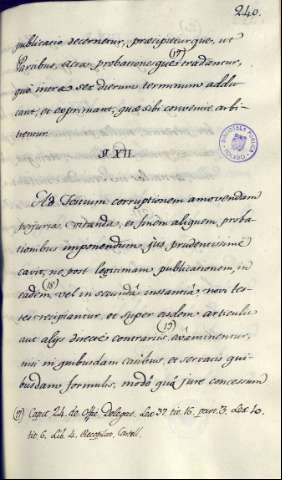 240.
publicatio decernetur, præcipiturque, ut
Partibus, acta, probationesque (17) tradantur,
quò intra sex dierum terminum addu
cant, et exprimant, quæ sibi convenire arbi
trentur.
§ XII.
Ad Testium corruptionem amovendam
perjuria vitanda, et finem aliquem proba
tionibus imponendum jus prudentissimè
cavit, ne post legitimam publicationem, in
eadem, (18) vel in secunda instantia novi tes
tes recipiantur, et super eisdem articulis
aut alijs directè contrarijs (19) examinentur,
nisi in quibusdam casibus, et servatis qui
busdam formulis, modò quà jure concessum
(17) Capit. 24. de Offic. Delegat. Lex 37. tit. 16. part. 3. Lex 10.
tit. 6. Lib. 4. Recopilac. Castell.